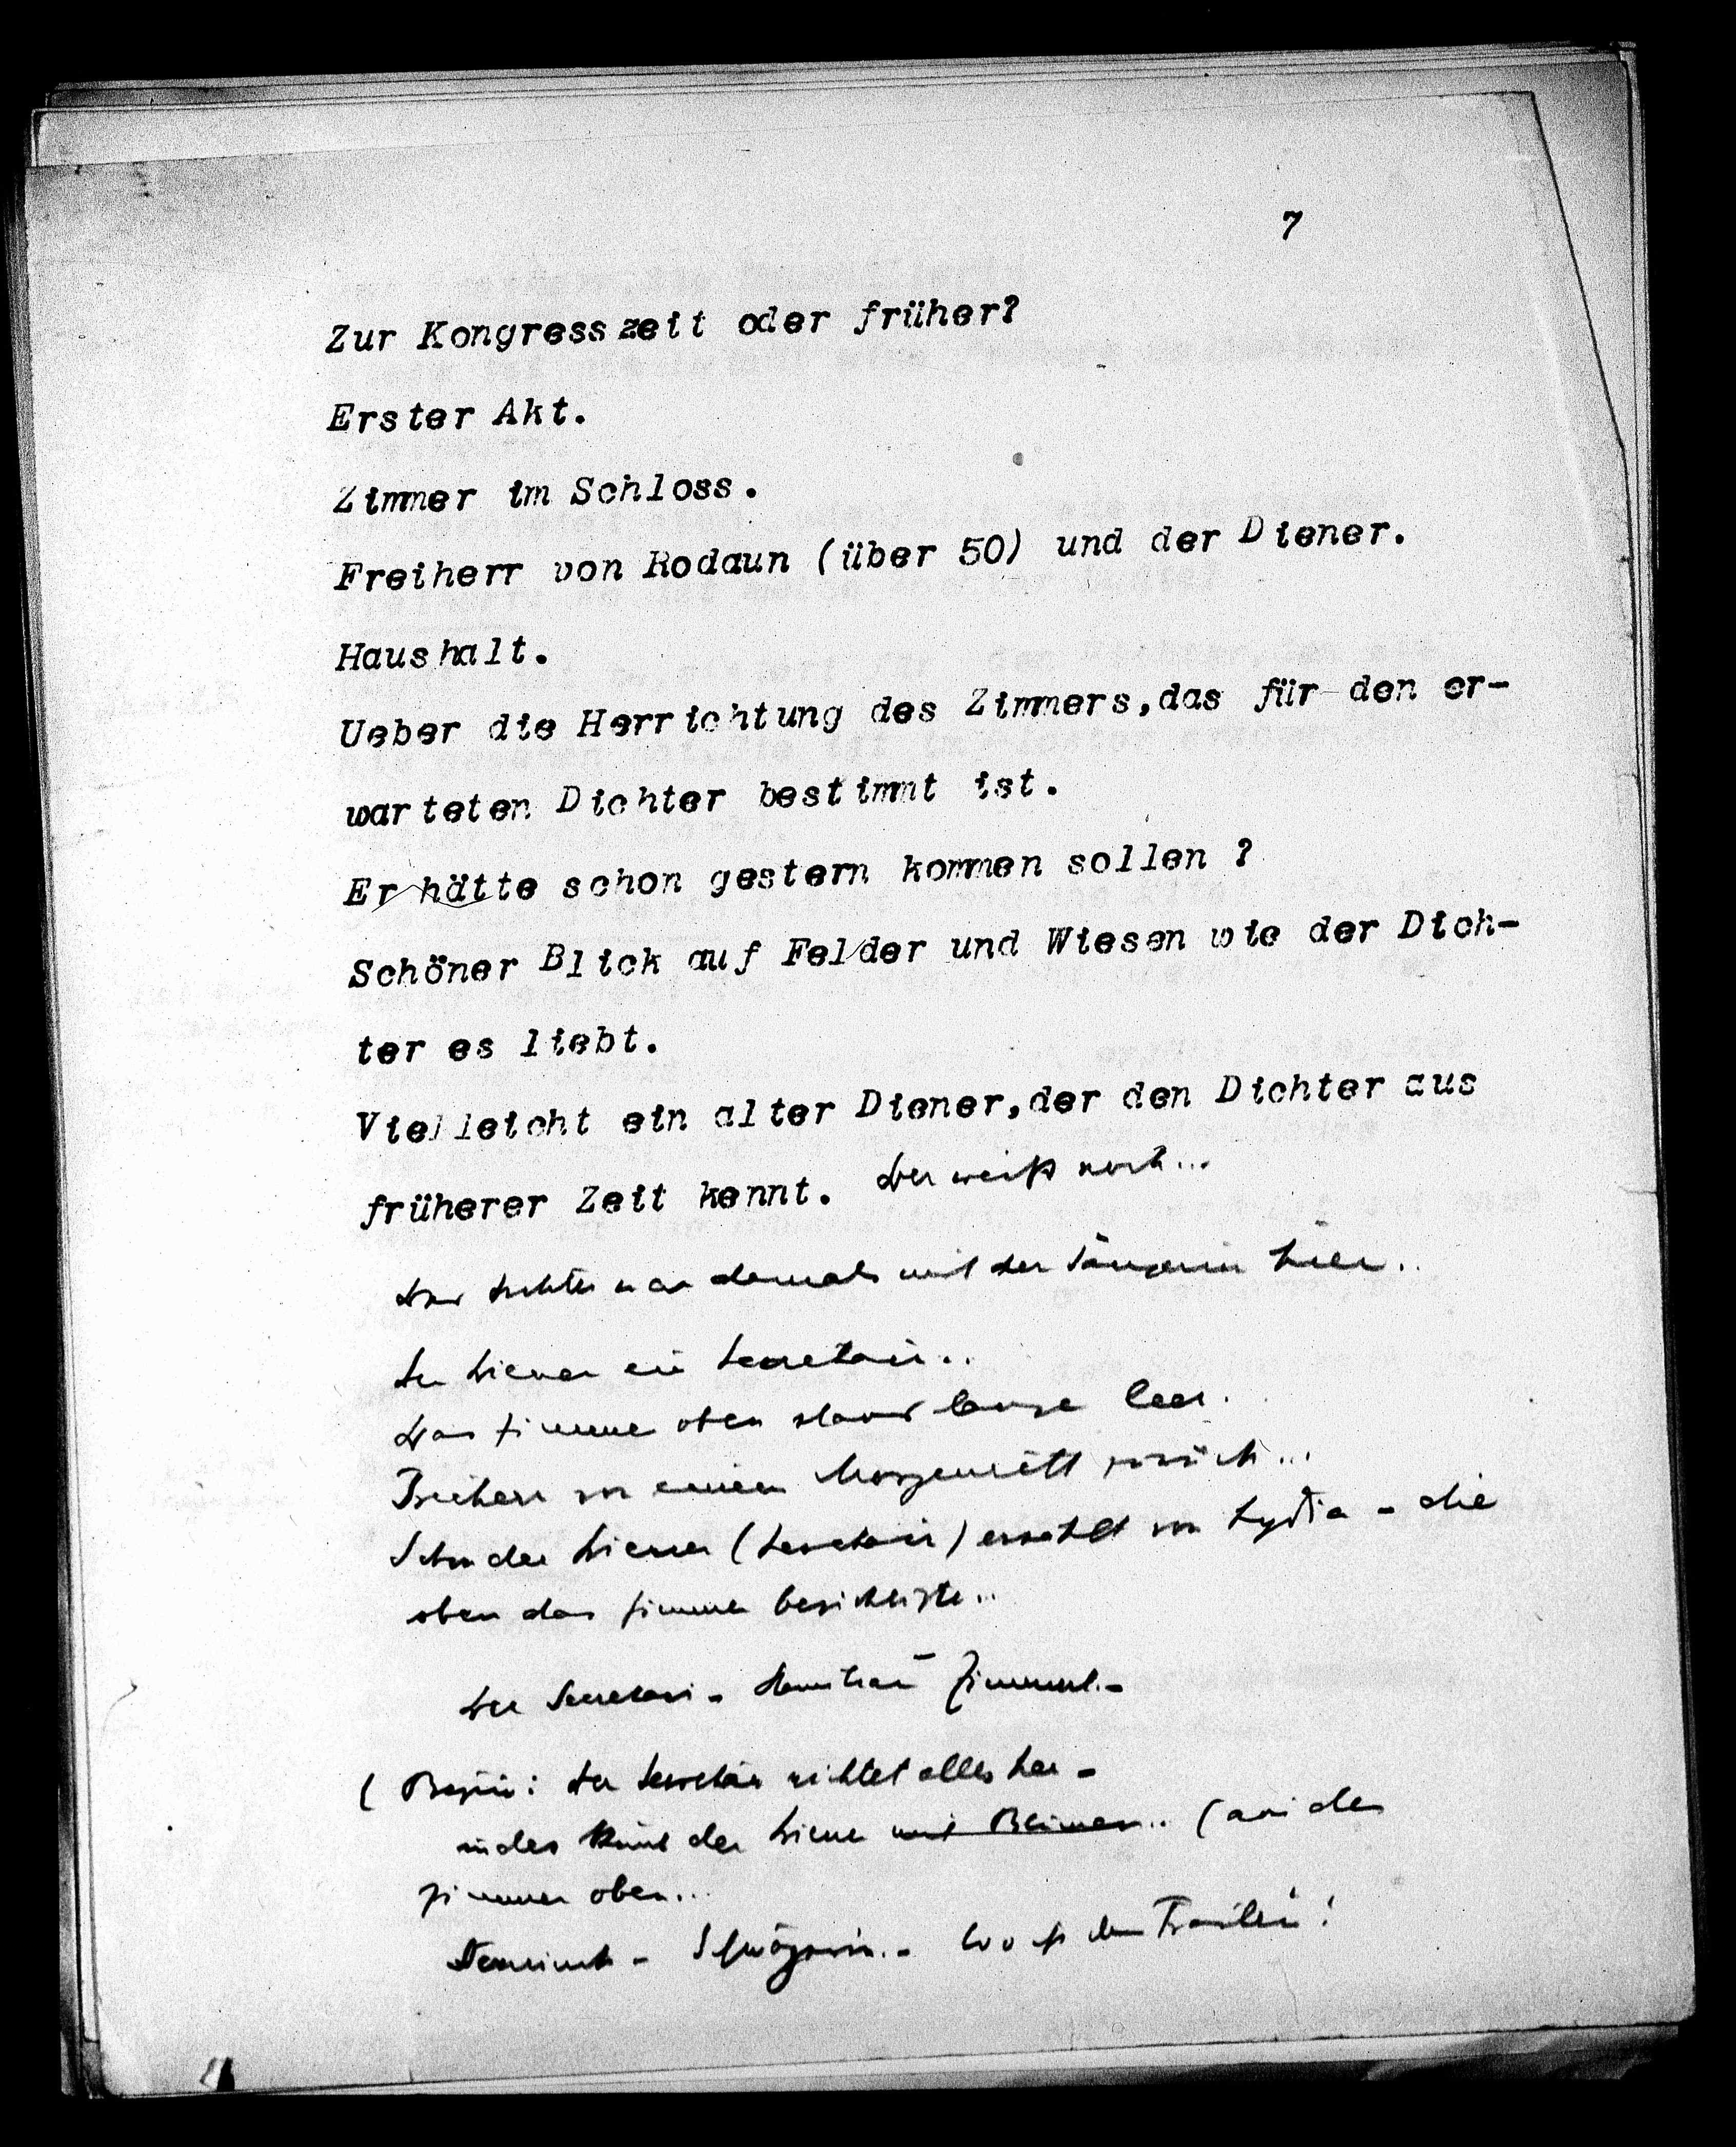 7
Zur Kongresszeit oder früher?
Erster Akt.
Zimmer im Schloss.
Freiherr von Rodaun (über 50) und der Diener.
Haushalt.
Ueber die Herrichtung des Zimmers, das für den er-
warteten Dichter bestimmt ist.
Er hätte schon gestern kommen sollen ?
Schöner Blick auf Felder und Wiesen wie der Dich-
ter es liebt.
Vielleicht ein alter Diener, der den Dichter aus
früherer Zeit kennt. Der weiß noch...
Der Dichter war damals mit der Sängerin hier..
Der Diener ein Secretair..
Das Zimmer oben stand lange leer.
Freiherr von einem Morgenritt zurück...
der Diener (Secretair) erzählt von Lydia - die
oben das Zimmer besichtigte..
Der Secretair - Zimmer -
( Beginn: Der Secretär richtet alles her -
indess kommt der Diener mit Blumen.. (aus dem
Zimmer oben...
- Schwägerin. - Wo ist das Fräulein?